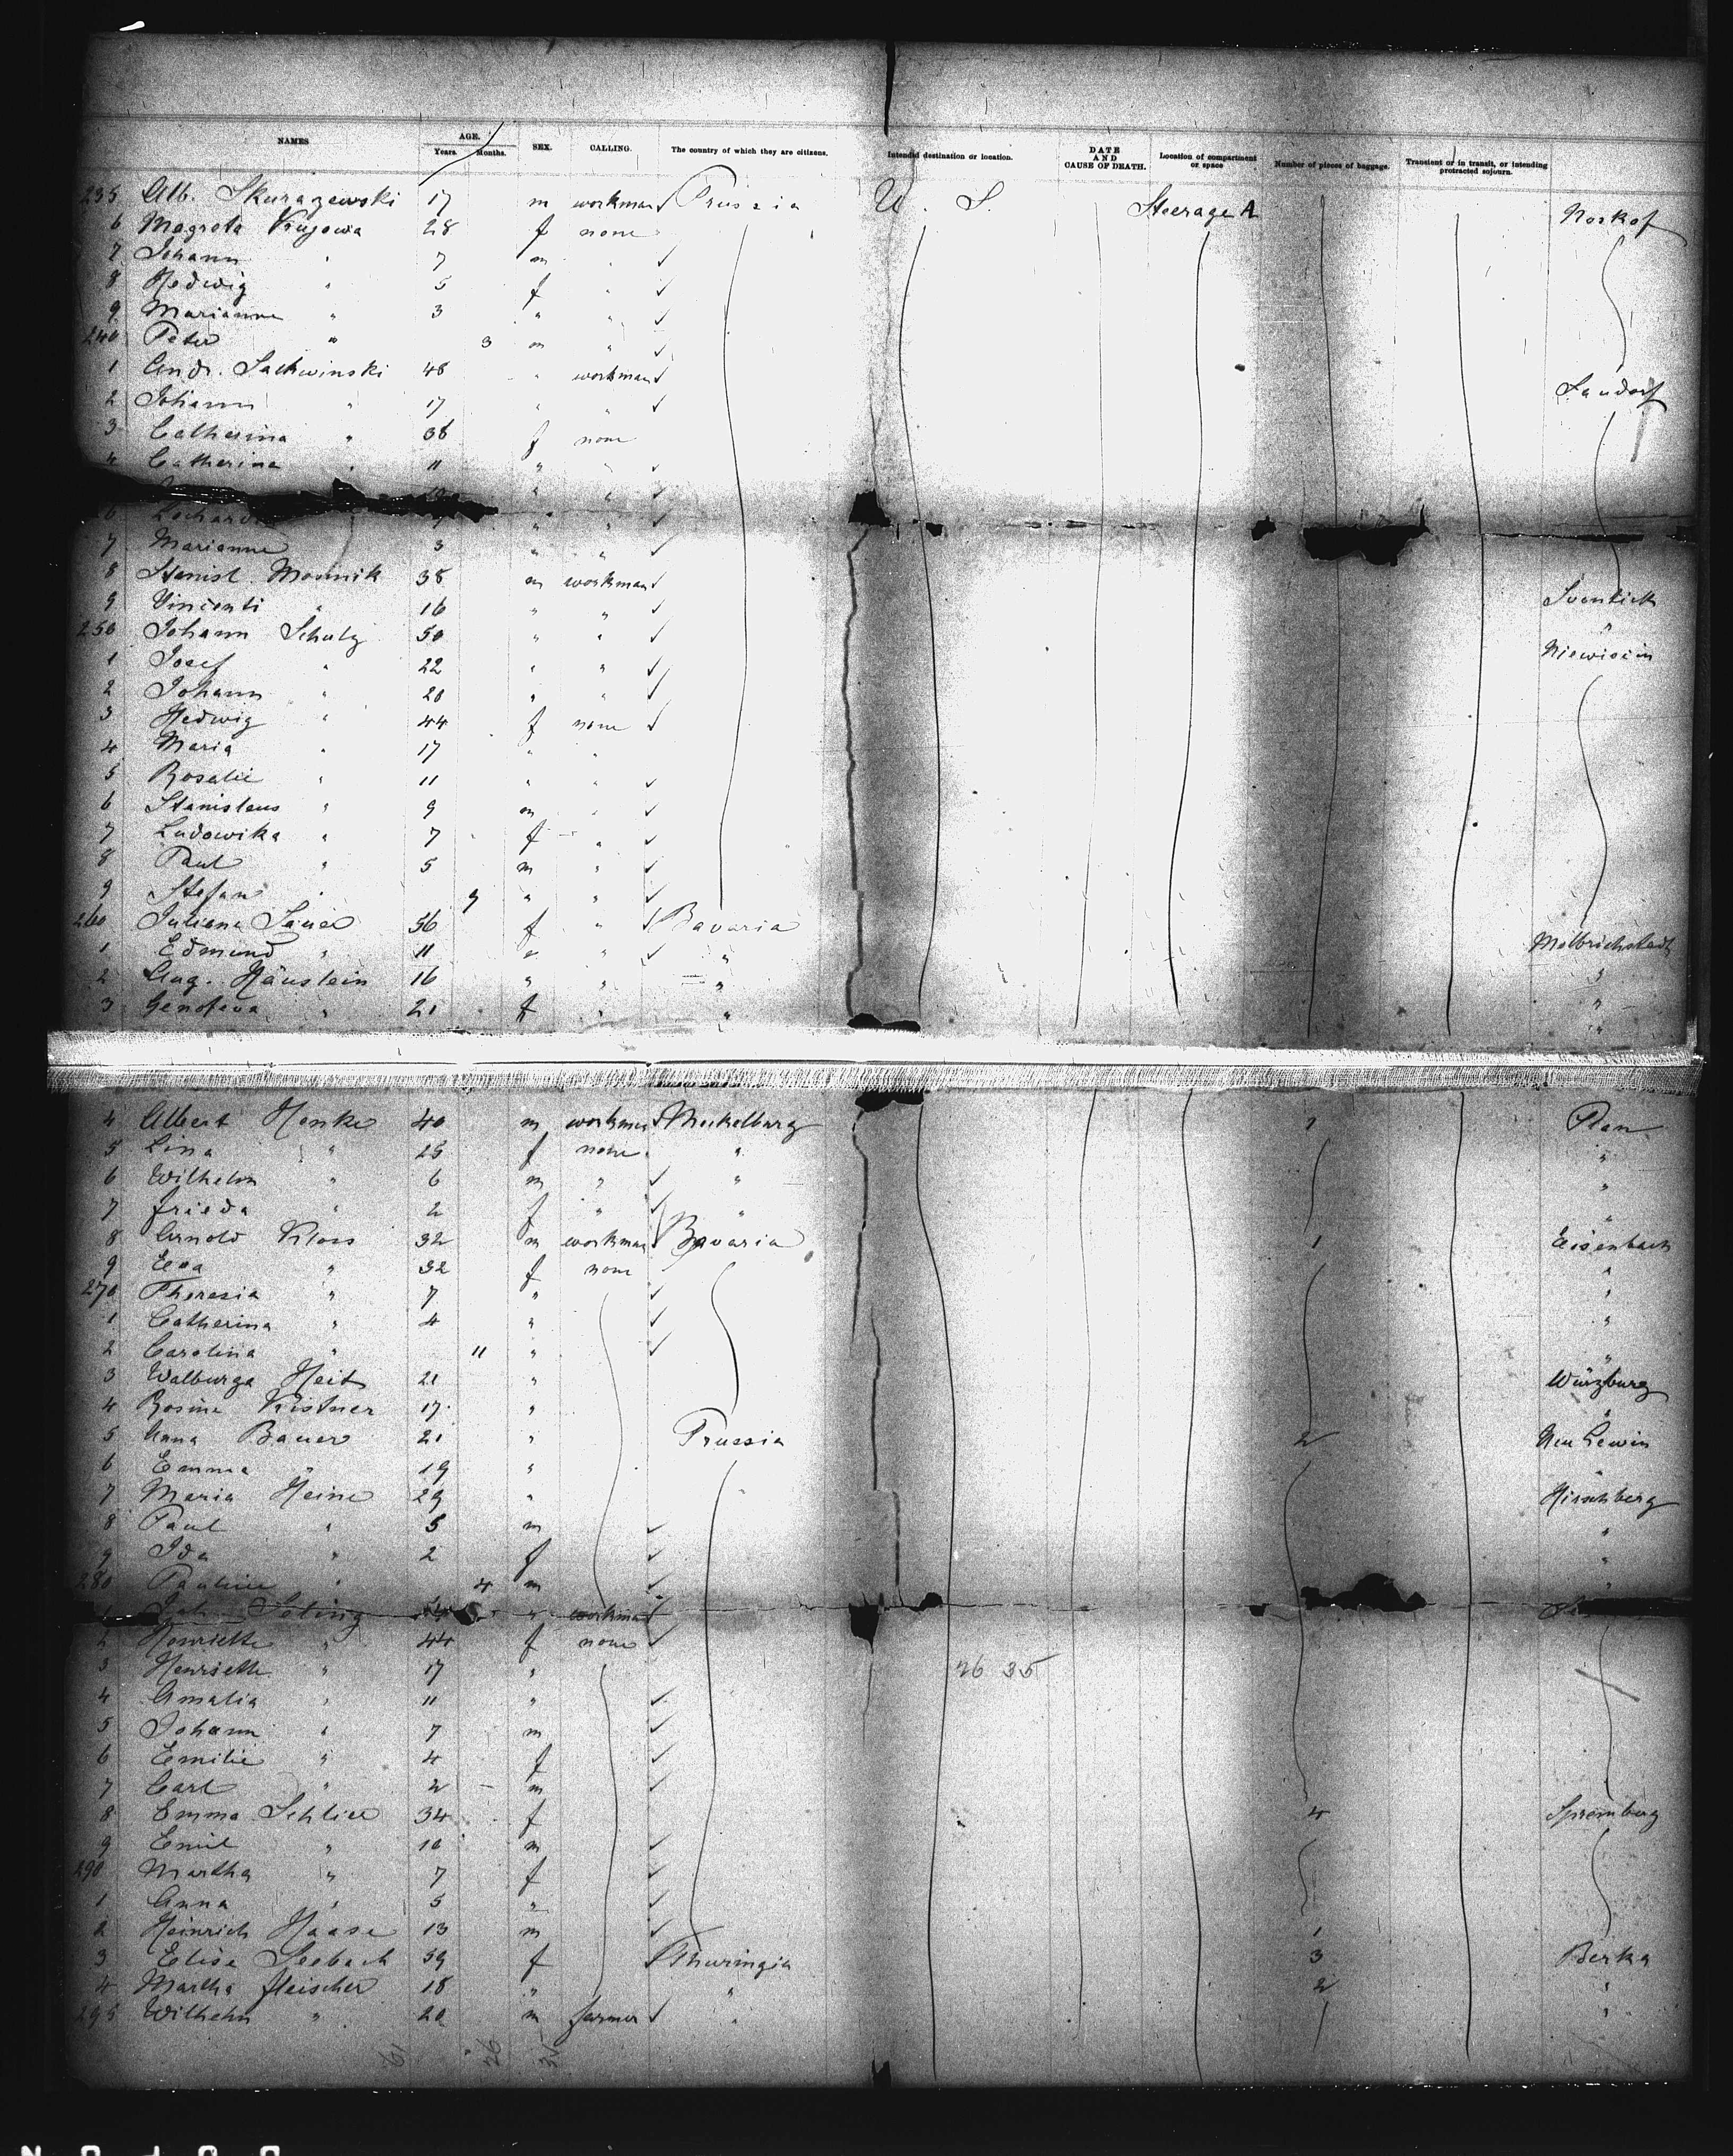 NAMES AGE. Years. Months. SEX. CALLING. The country of which they are citizens. Intended destination or location. DATE AND CAUSE OF DEATH. Location of compartment or space Number of pieces of baggage. Transient or in transit, or intending protracted sojourn.
235 Alb. Skurazewski 17 m workman Prussia U. S. Steerage A Noskof
6 Magreta Krugowa 28 f none
7 Johann " 7 m "
8 Hedwig " 5 f "
9 Marianne " 3 " "
240 Peter " 3 m "
1 Andr. Sachwinski 48 " workman Landorf
2 Johann " 17 " "
3 Catherina " 38 f none
4 Catherina " 11 " "
6
7 Marianne 3 " "
8 Stanisl. Mournik 38 m workman Sventick
9 Vincenti " 16 " " "
250 Johann Schulz 50 " " Niewiscin
1 Josef " 22 " "
2 Johann " 20 " "
3 Hedwig " 44 f none
4 Maria " 17 " "
5 Rosalie " 11 " "
6 Stanislaus " 9 m "
7 Ludowika " 7 f "
8 Paul " 5 m "
9 Stefan " 9 " "
260 Juliana Sauer 56 f " Bavaria Melbrichstadt
1 Edmund " 11 " " "
2 Aug. Häuslein 16 " " " "
3 Genofeva " 21 f " " "
4 Albert Henke 40 m workman Meckelburg 1 Plan
5 Lina " 25 f none " "
6 Wilhelm " 6 m " " "
7 Frieda " 2 f " " "
8 Arnold Kloss 32 m workman Bavaria 1 Eisenbach
9 Eva " 32 f none "
270 Theresia " 7 " "
1 Catherina " 4 " "
2 Carolina " 11 " "
3 Walburga Heit 21 " Würzburg
4 Rosine Kistner 17 " "
5 Anna Bauer 21 " Prussia 2 Neu Lewin
6 Emma " 19 " "
7 Maria Heine 29 " Hirschberg
8 Paul " 5 m "
9 Ida " 2 f "
280 Pauline " 4 m "
Seting " workman
2 Henriette " 44 f none
3 Henriette " 17 " 26 35
4 Amalia " 11 "
5 Johann " 7 m
6 Emilie " 4 f
7 Carl " 2 m
8 Emma Schlice 34 f 4 Spremberg
9 Emil " 10 m
290 Martha " 7 f
1 Anna " 5 "
2 Heinrich Haase 13 m 1
3 Elise Seebach 59 f Thuringia 3 Berka
4 Martha Fleischer 18 " " 2 "
295 Wilhelm " 20 m farmer " "
61 26 35